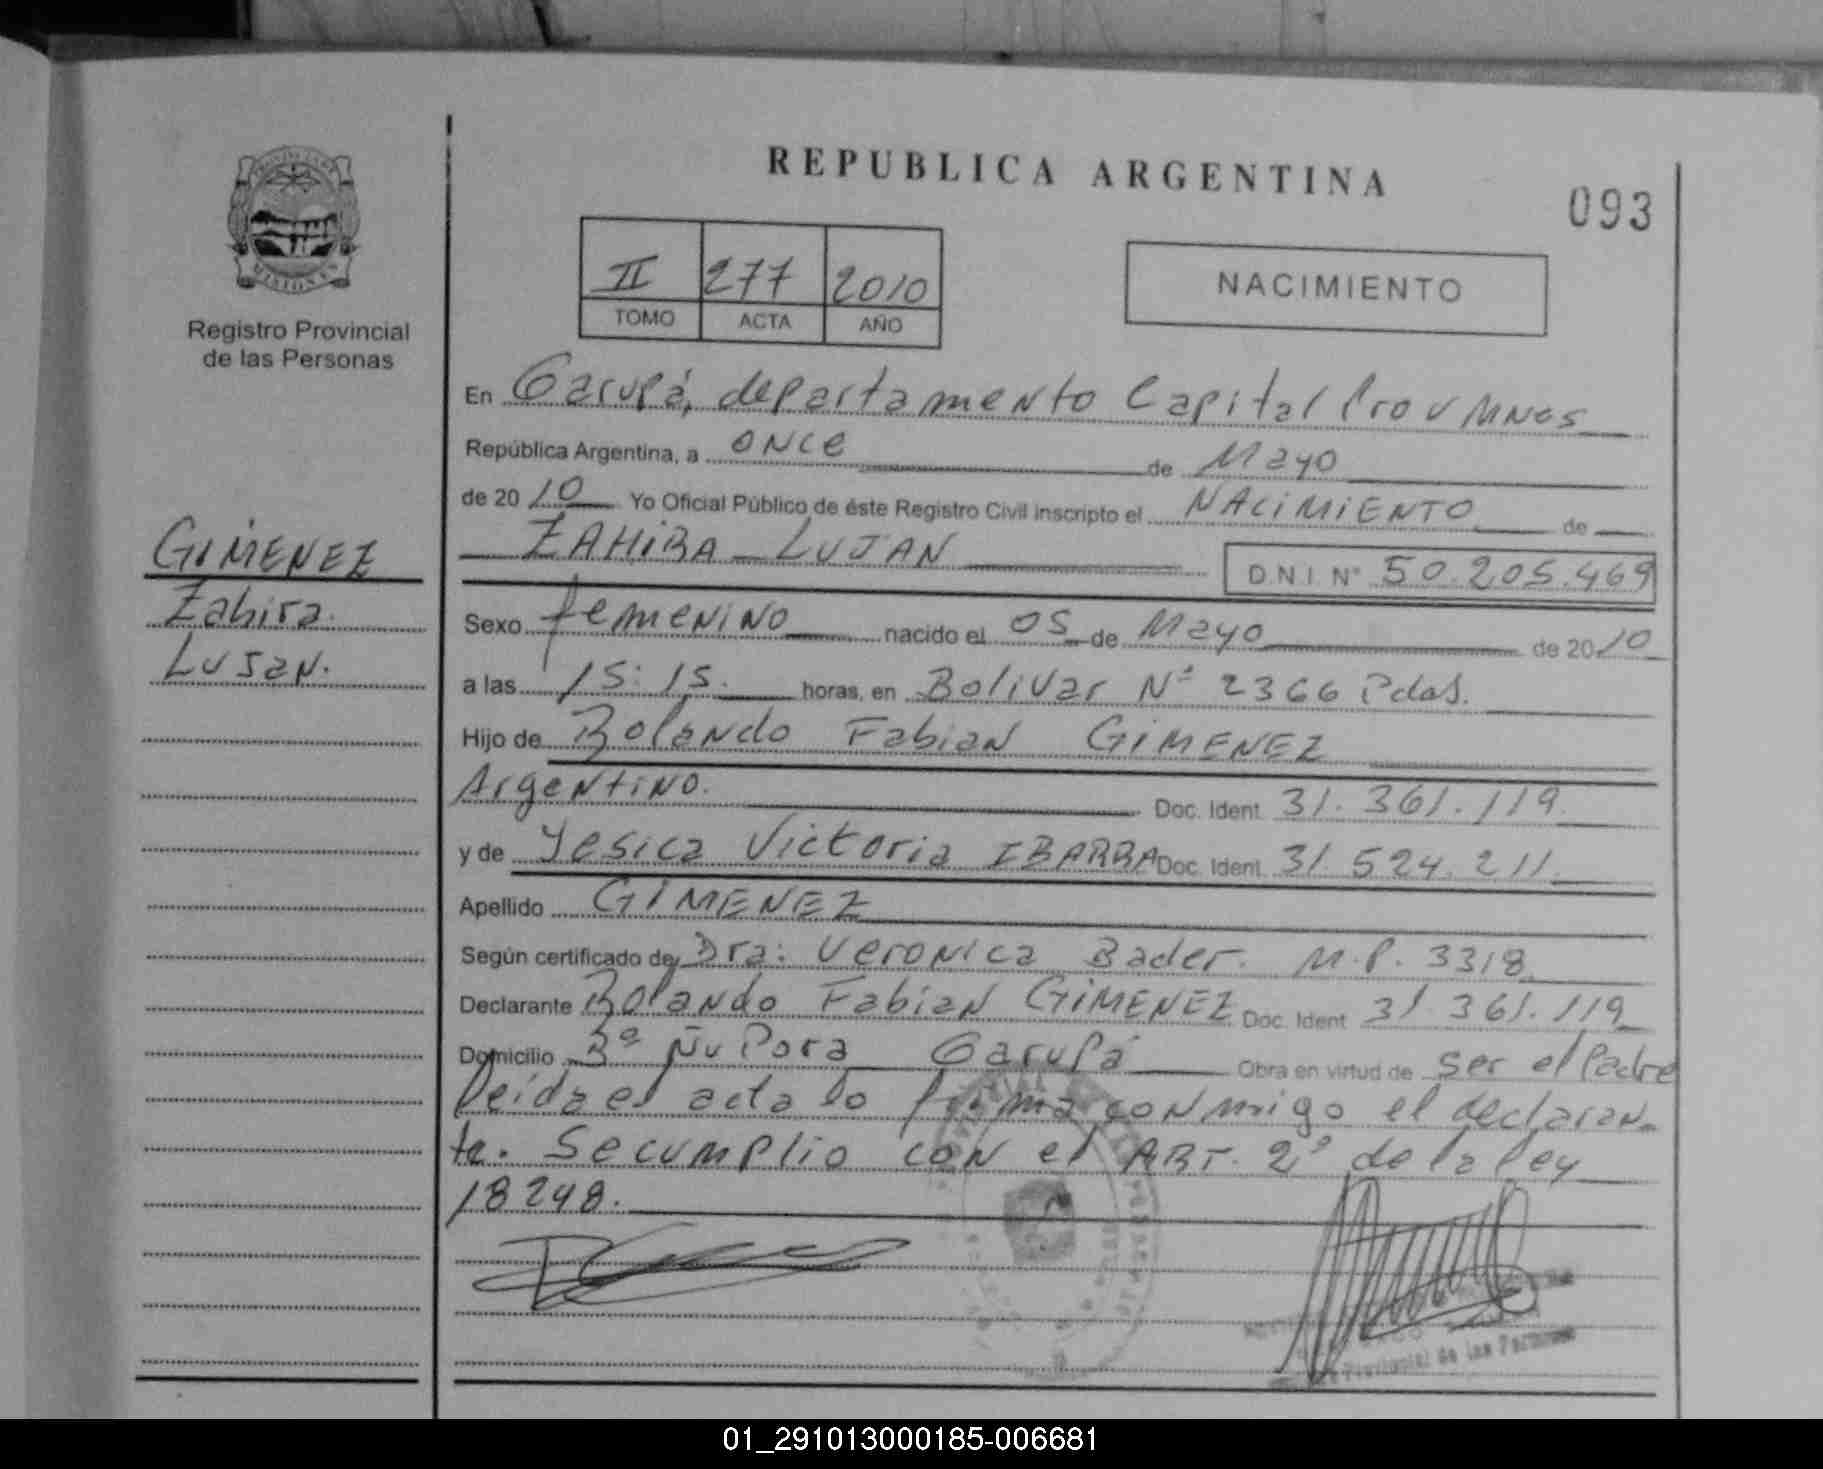 REPUBLICA ARGENTINA
093
II 277 2010
TOMO ACTA AÑO
NACIMIENTO
MISIONES
Registro Provincial
de las Personas
GIMENEZ
Zahira
Lujan.
En Garupá, departamento Capital Prov MNES
República Argentina, a once de Mayo
de 2010 Yo Oficial Público de éste Registro Civil inscripto el NACIMIENTO de
ZAHIRA LUJAN D.N.I. N° 50.205.469
Sexo femenino nacido el 05 de Mayo de 2010
a las 15:15. horas, en Bolivar N° 2366 Pdas.
Hijo de Rolando Fabian GIMENEZ
Argentino. Doc. Ident. 31.361.119.
y de Yesica Victoria IBARRA Doc. Ident. 31.524.211.
Apellido GIMENEZ
Según certificado de Dra: Veronica Bader. M.P. 3318
Declarante Rolando Fabian GIMENEZ Doc. Ident 31.361.119
Domicilio B° Ñu Pora Garupá Obra en virtud de ser el Padre
Leida el acta lo firma conmigo el declaran-
te. Se cumplio con el ART. 2° de la ley
18248.
Provincial de las Personas
01_291013000185-006681